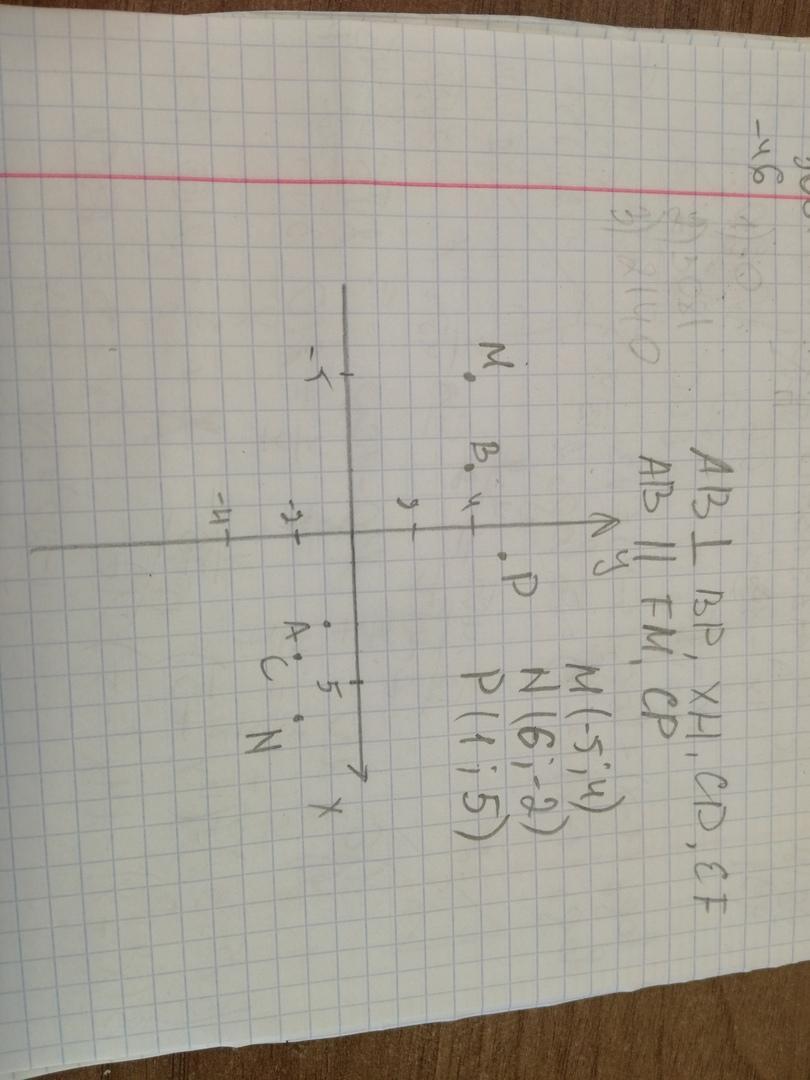 -46
AB ⊥ BP, XH, CD, EF
AB || FM, CP
M(-5; 4)
N(6; -2)
P(1; 5)
y
M
B
4
P
2
-5
5
x
A
-2
C
N
-4